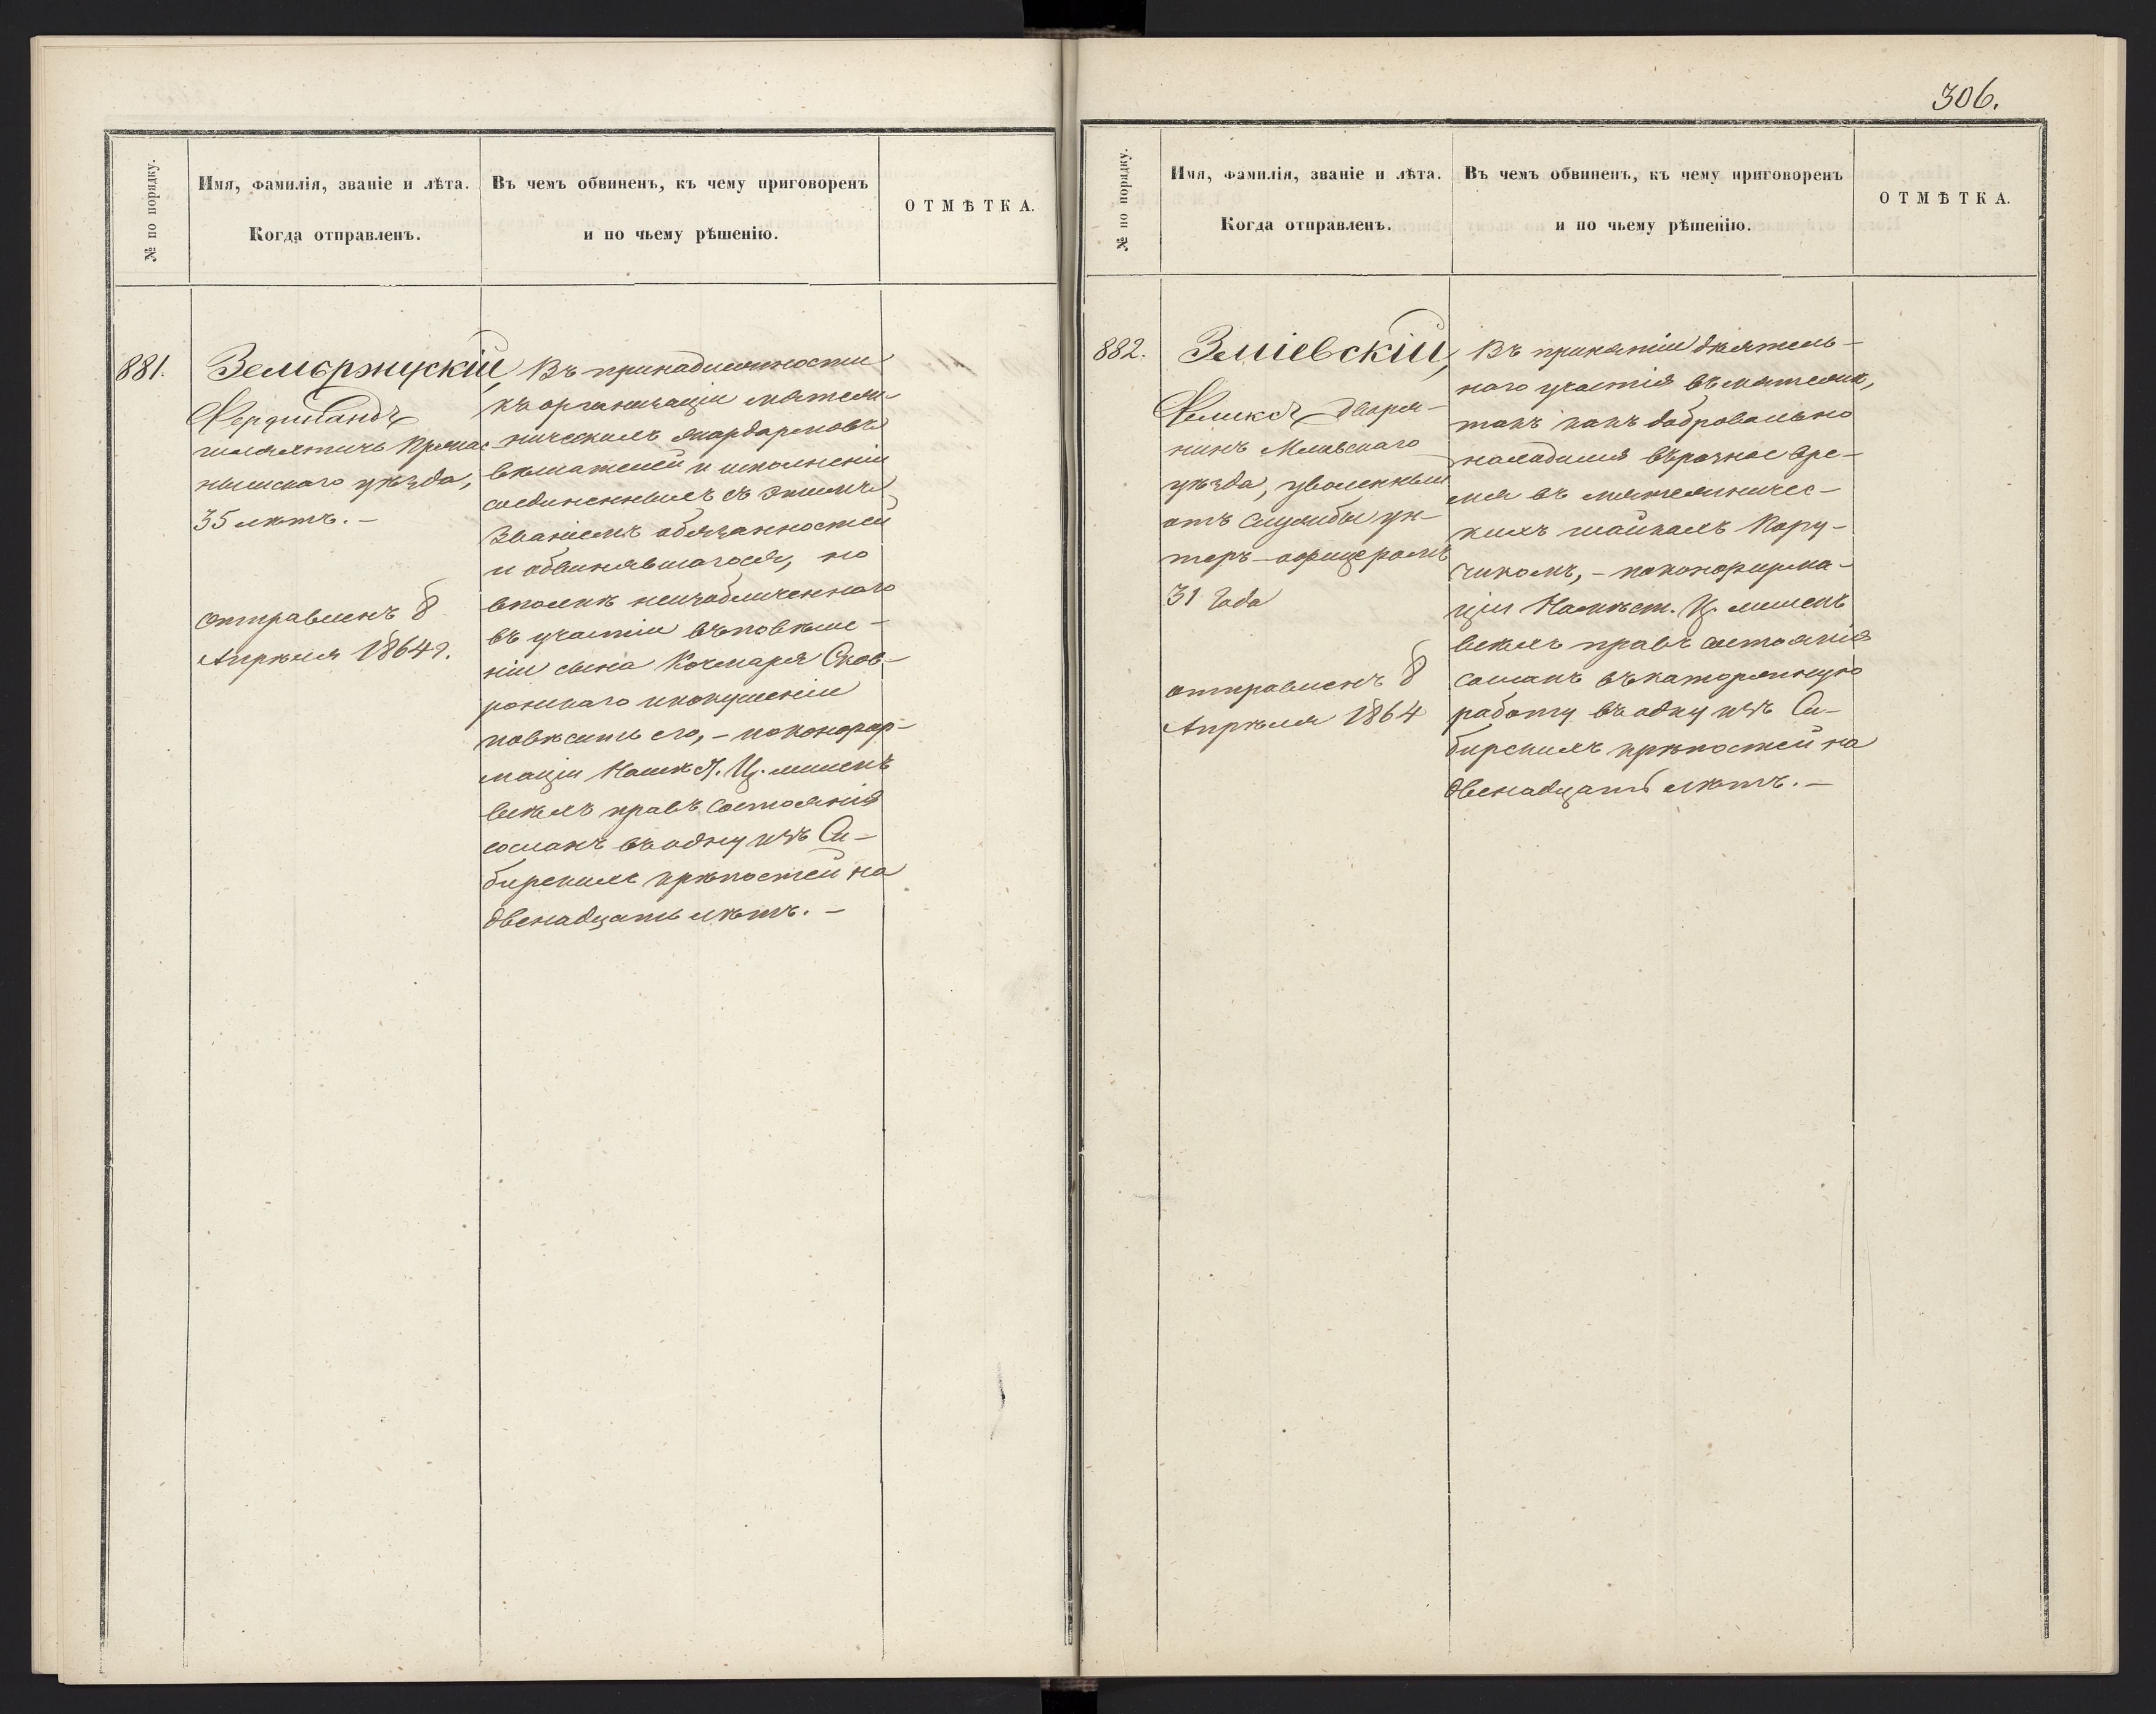 № по порядку.
Имя, фамилія, званіе и лѣта.
Когда отправленъ.
Въ чемъ обвиненъ, къ чему приговоренъ
и по чьему рѣшенію.
ОТМѢТКА.
881.
Земержицкій,
Фердинандъ
шляхтичъ Прасныш-
нышскаго уѣзда,
35 лѣтъ. —
отправленъ 8
Апрѣля 1864 г.
Въ принадлежности
къ организаціи мятеж-
ническихъ жандармовъ
вѣшателей и исполненіи
соединенныхъ съ этимъ
званіемъ обязанностей
и обвинявшагося, но
вполнѣ неизобличеннаго
въ участіи въ повѣше-
ніи сына Кочмаря Сков-
ронскаго и покушеніи
повѣсить его, — по конфир-
маціи Намѣст. Ц. лишенъ
всѣхъ правъ состоянія
сосланъ въ одну изъ Си-
бирскихъ крѣпостей на
двенадцать лѣтъ. —
306.
№ по порядку.
Имя, фамилія, званіе и лѣта.
Когда отправленъ.
Въ чемъ обвиненъ, къ чему приговоренъ
и по чьему рѣшенію.
ОТМѢТКА.
882.
Зміевскій,
Феликсъ Дворя-
нинъ Млавскаго
уѣзда, уволенный
отъ службы ун-
теръ-офицеромъ
31 года
отправленъ 8
Апрѣля 1864
Въ принятіи дѣятель-
наго участія въ мятежѣ,
такъ какъ добровольно
находился въ разное вре-
мя въ мятежничес-
кихъ шайкахъ Пору-
чикомъ, — по конфирма-
ціи Намѣст. Ц. лишенъ
всѣхъ правъ состоянія
сосланъ въ каторжную
работу въ одну изъ Си-
бирскихъ крѣпостей на
двенадцать лѣтъ. —